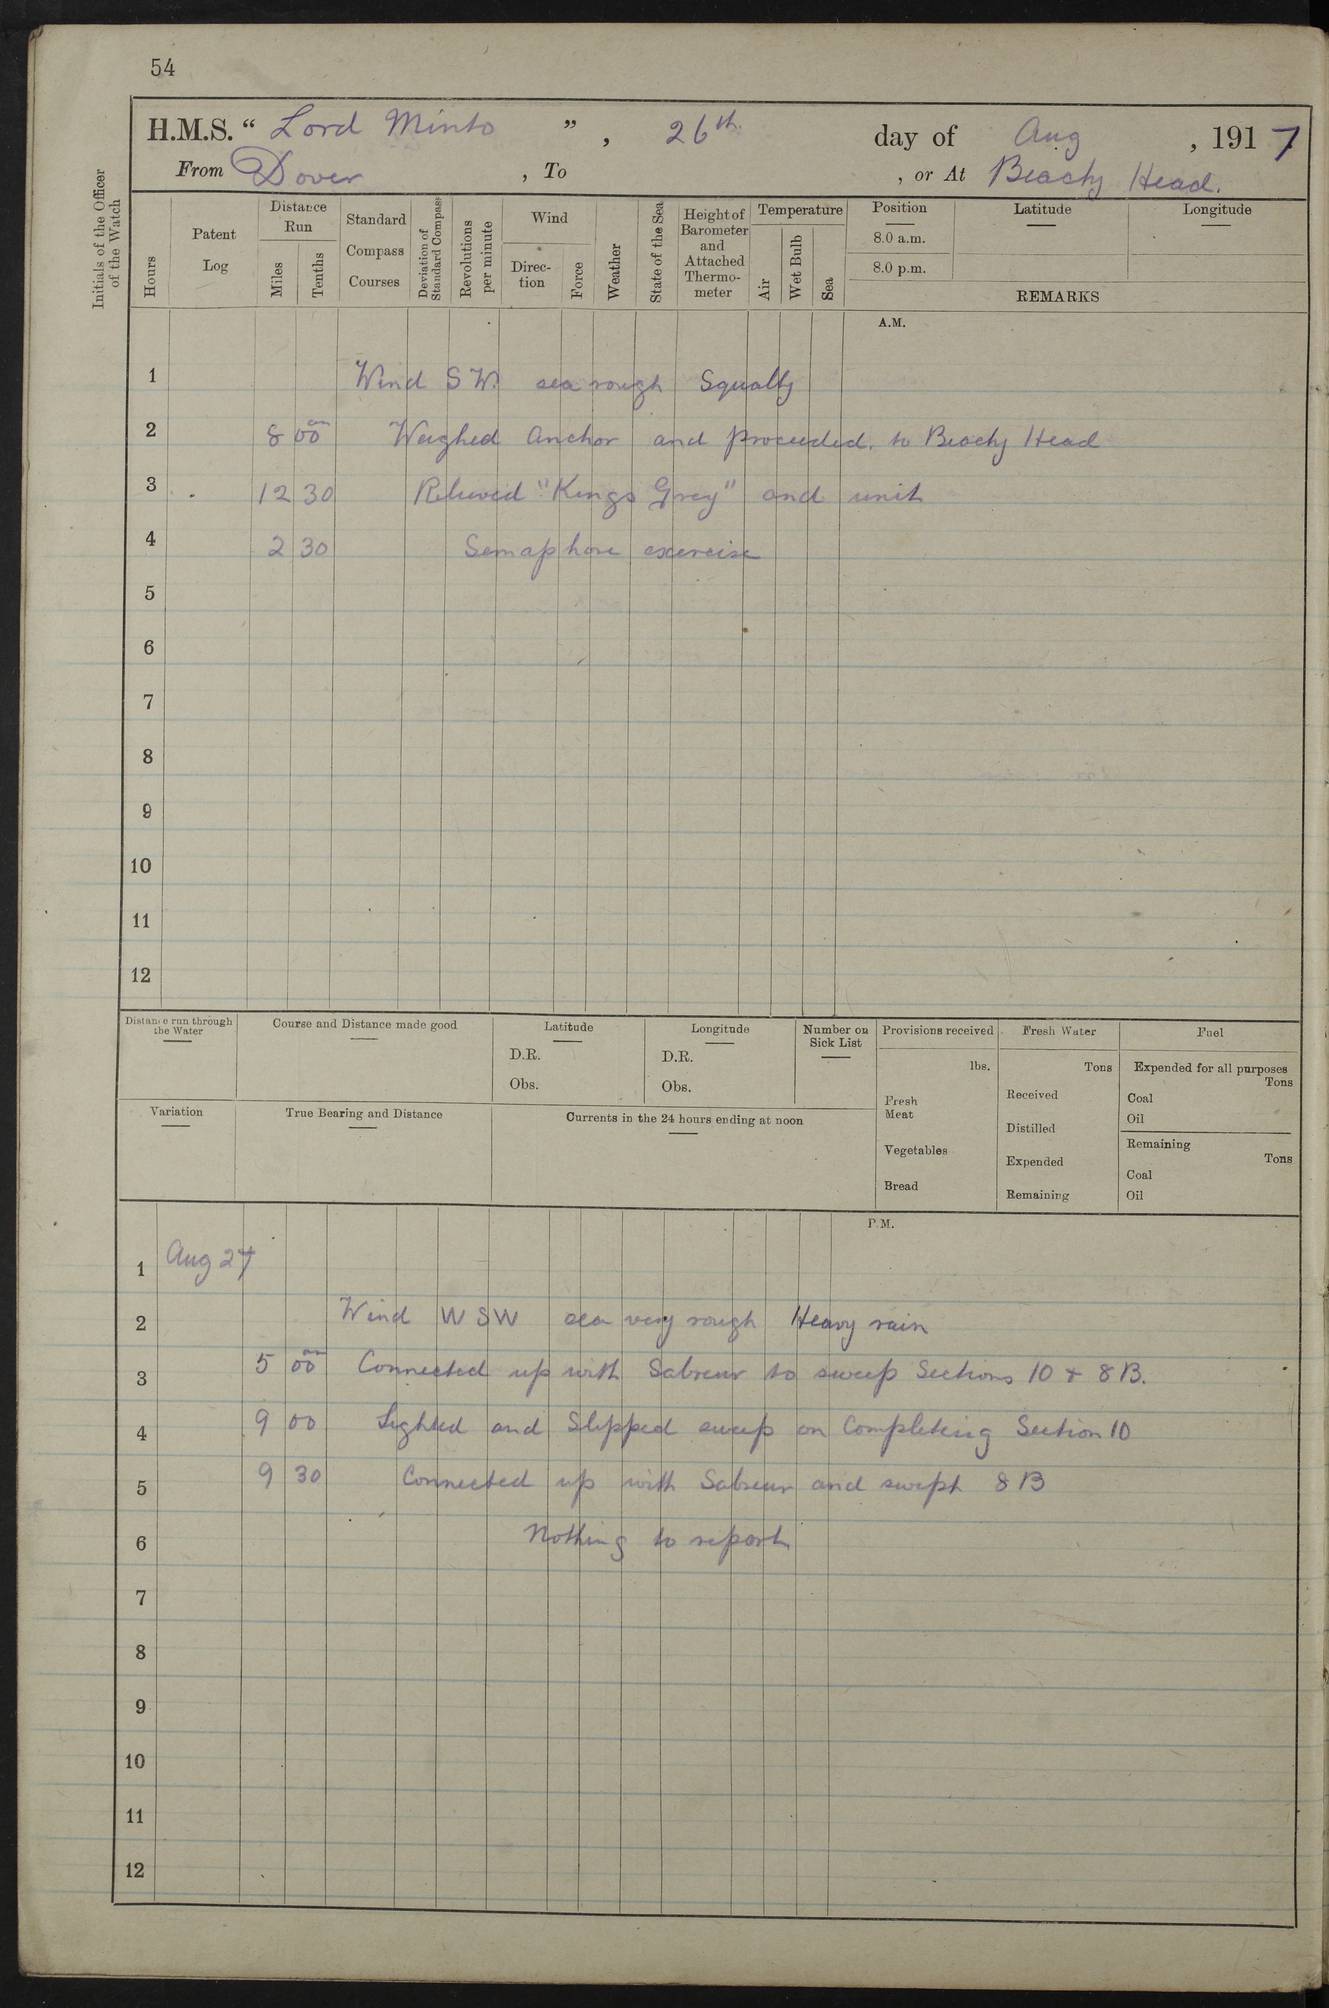 54
H.M.S. “ Lord Minto ” , 26th day of Aug , 1917
From Dover , To , or At Beachy Head.
Initials of the Officer of the Watch
Hours
Patent Log
Distance Run
Miles
Tenths
Standard Compass Courses
Deviation of Standard Compass
Revolutions per minute
Wind
Direc-tion
Force
Weather
State of the Sea
Height of Barometer and Attached Thermo-meter
Temperature
Air
Wet Bulb
Sea
Position Latitude Longitude
8.0 a.m.
8.0 p.m.
REMARKS
A.M.
1 Wind S W. sea rough Squally
2 8 00 am Weighed Anchor and proceeded. to Beachy Head
3 12 30 Relieved "Kings Grey" and unit
4 2 30 Semaphore exercise
5
6
7
8
9
10
11
12
Distance run through the Water
Course and Distance made good
Latitude
D.R.
Obs.
Longitude
D.R.
Obs.
Number on Sick List
Provisions received
lbs.
Fresh Meat
Vegetables
Bread
Fresh Water
Tons
Received
Distilled
Expended
Remaining
Fuel
Expended for all purposes
Tons
Coal
Oil
Remaining
Tons
Coal
Oil
Variation
True Bearing and Distance
Currents in the 24 hours ending at noon
P.M.
1 Aug 27
2 Wind W S W sea very rough Heavy rain
3 5 00 am Connected up with Sabreur to sweep Sections 10 & 8 B.
4 9 00 Sighted and Slipped sweep on Completing Section 10
5 9 30 Connected up with Sabreur and swept 8 B
6 Nothing to report
7
8
9
10
11
12